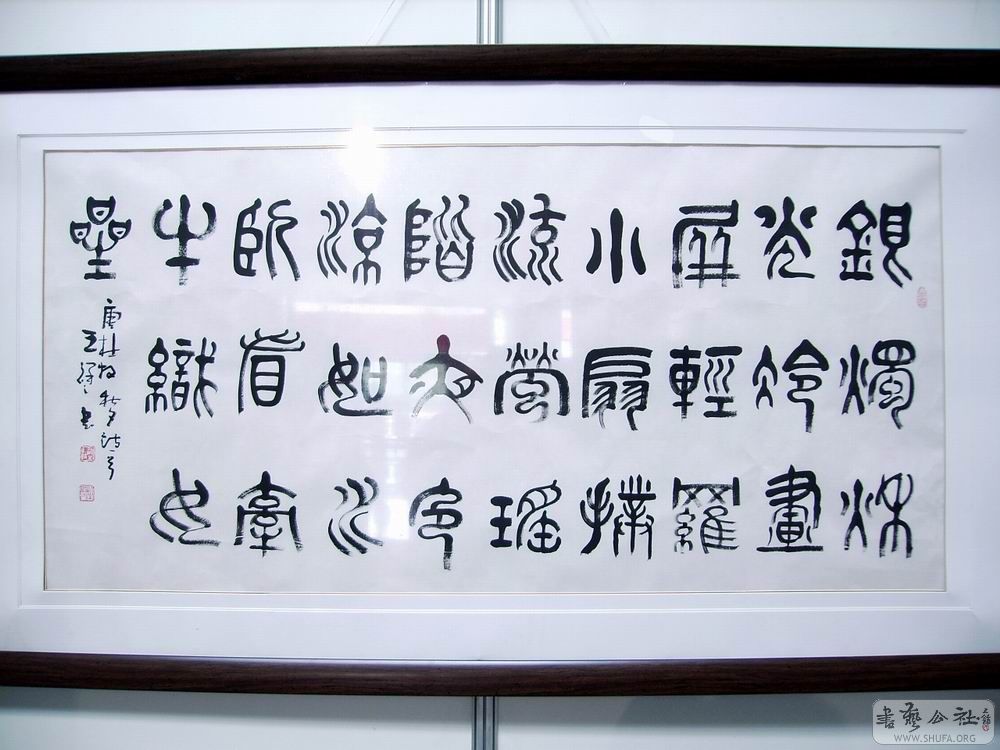 銀燭秋
光冷畫
屏輕羅
小扇撲
流螢瑤
階夜色
涼如水
臥看牽
牛織女
星
唐杜牧秋夕詩
王 書
書藝公社
WWW.SHUFA.ORG